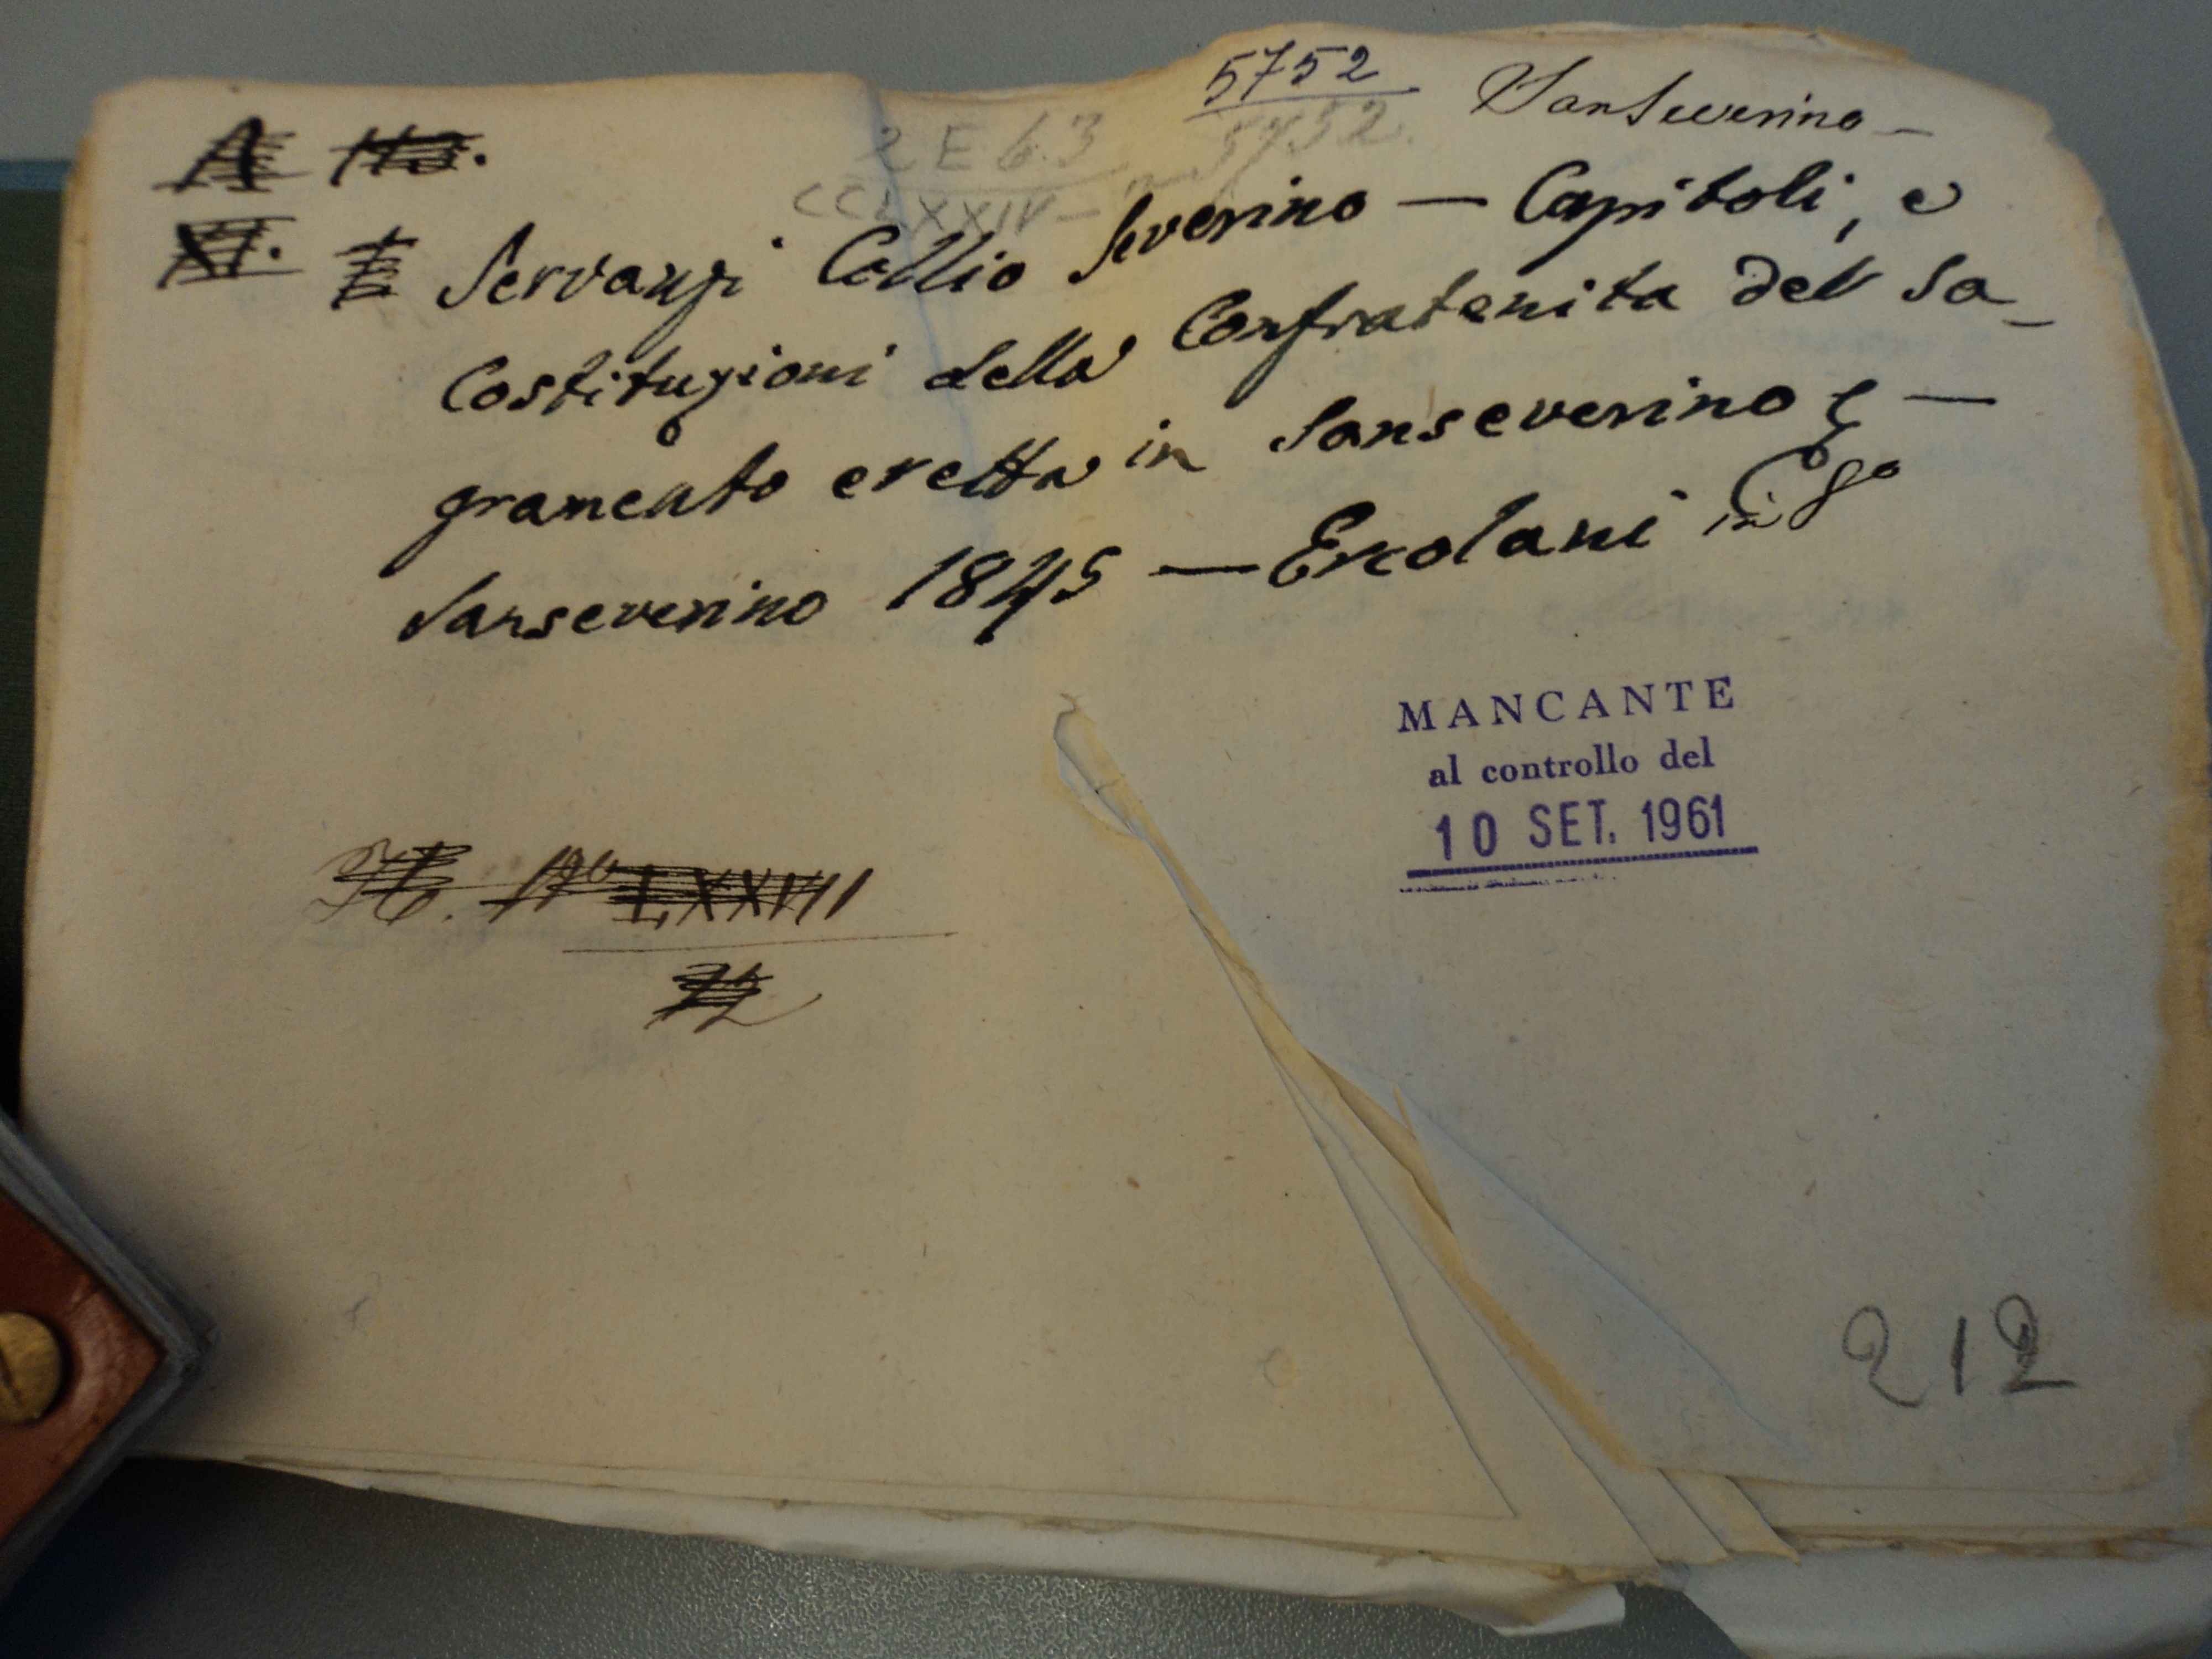 5752
Sanseverino —
2 E 63 5752.
CCLXXIV —
A
XI.
Servanzi Collio Severino — Capitoli, e
Costituzioni della Confratenita del Sa_
gramento eretta in Sanseverino —
Sanseverino 1845 — Ercolani in
MANCANTE
al controllo del
10 SET. 1961
No LXXVIII
212